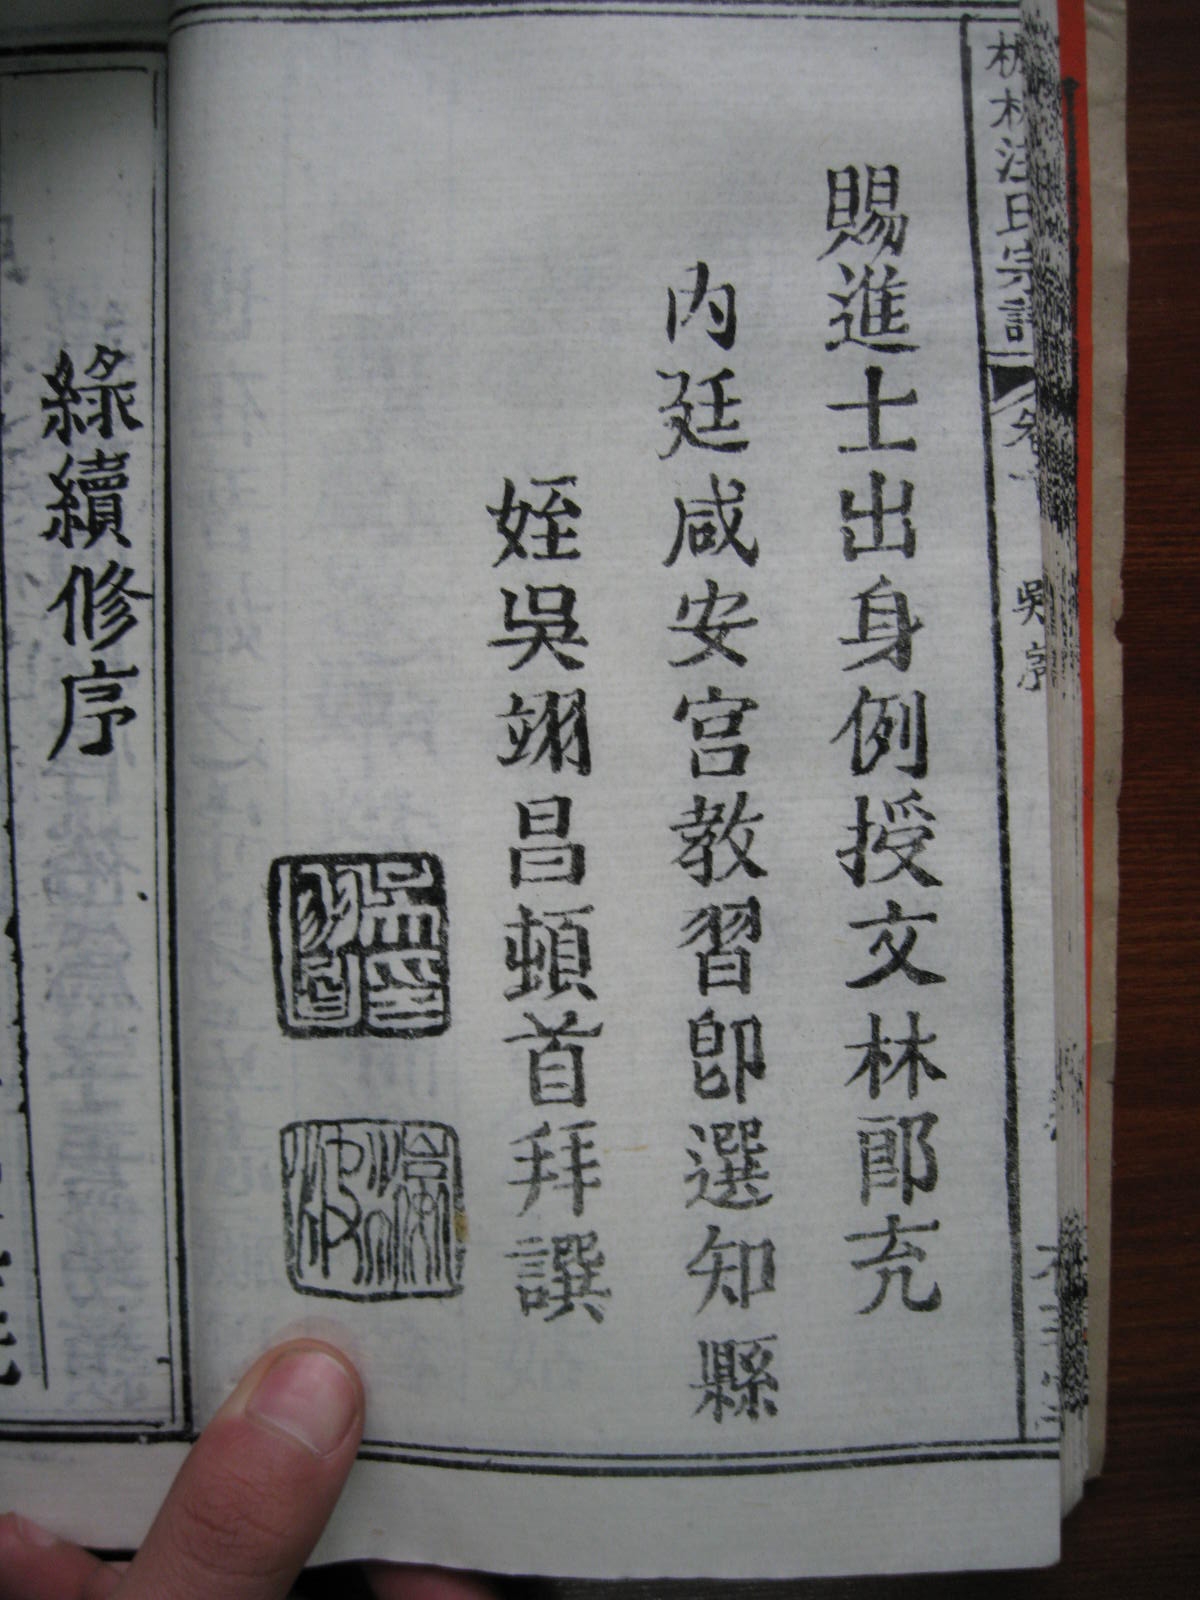 汪氏宗譜
吳序
賜進士出身例授文林郎充
内廷咸安宮教習卽選知縣
姪吳翊昌頓首拜譔
緣續修序